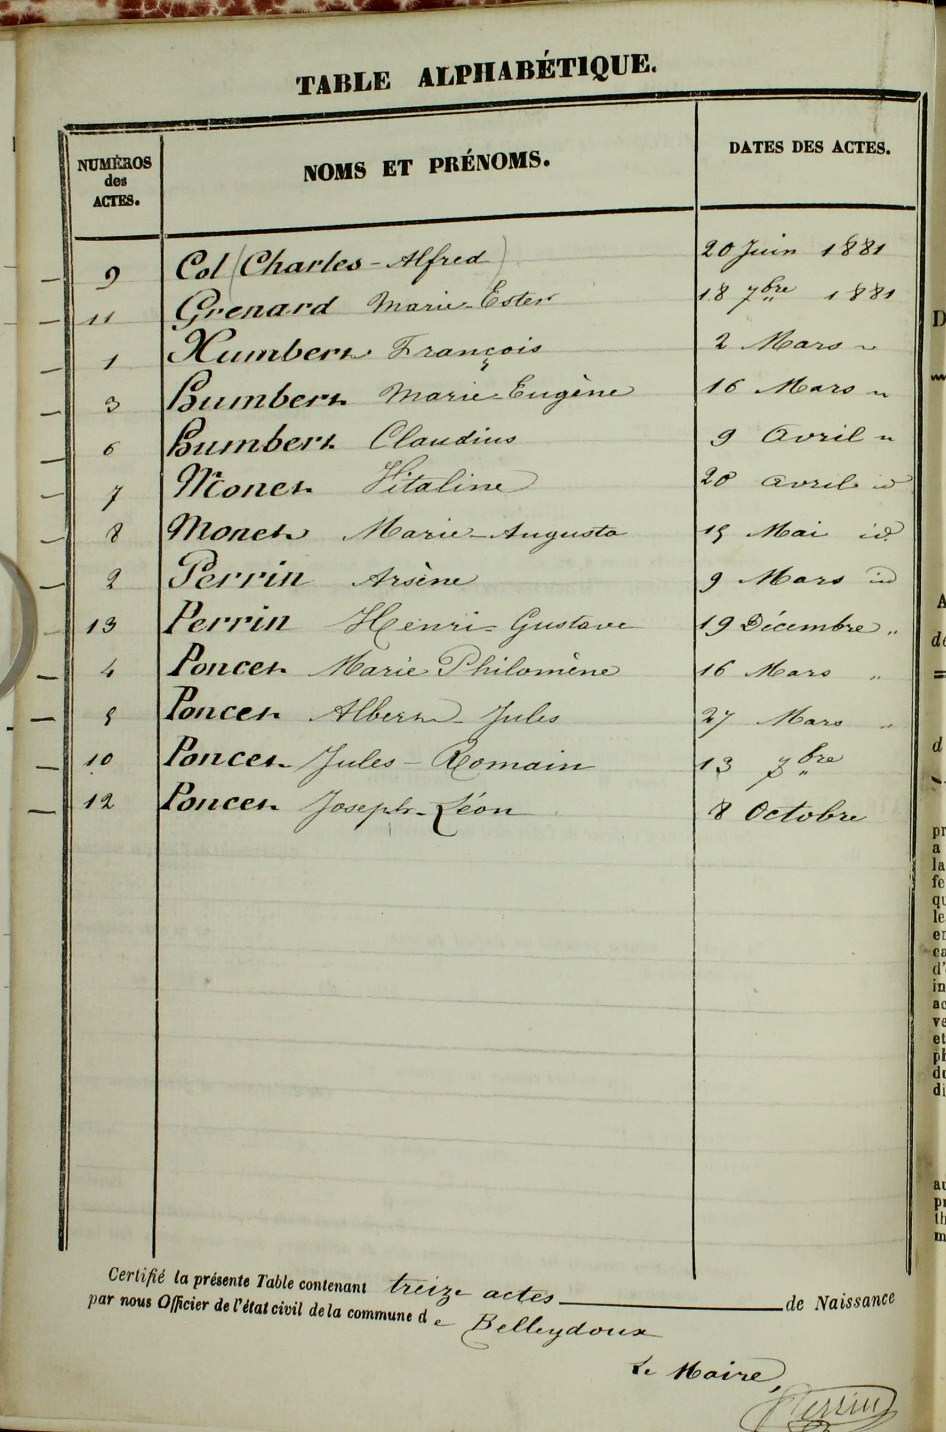 TABLE ALPHABÉTIQUE.
NUMÉROS des ACTES. NOMS ET PRÉNOMS. DATES DES ACTES.
9 Col (Charles-Alfred) 20 Juin 1881
11 Grenard Marie-Ester 18 7bre 1881
1 Humbert François 2 Mars "
3 Humbert Marie-Eugène 16 Mars "
6 Humbert Claudius 9 Avril "
7 Monet Vitaline 20 avril id
8 Monet Marie-Augusta 15 Mai id.
2 Perrin Arsène 9 Mars id
13 Perrin Henri-Gustave 19 Décembre "
4 Poncet Marie Philomène 16 Mars "
5 Poncet Albert-Jules 27 Mars "
10 Poncet Jules-Romain 13 7bre "
12 Poncet Joseph-Léon 8 Octobre
Certifié la présente Table contenant treize actes de Naissance
par nous Officier de l'état civil de la commune de Belleydoux
Le Maire,
Perrin